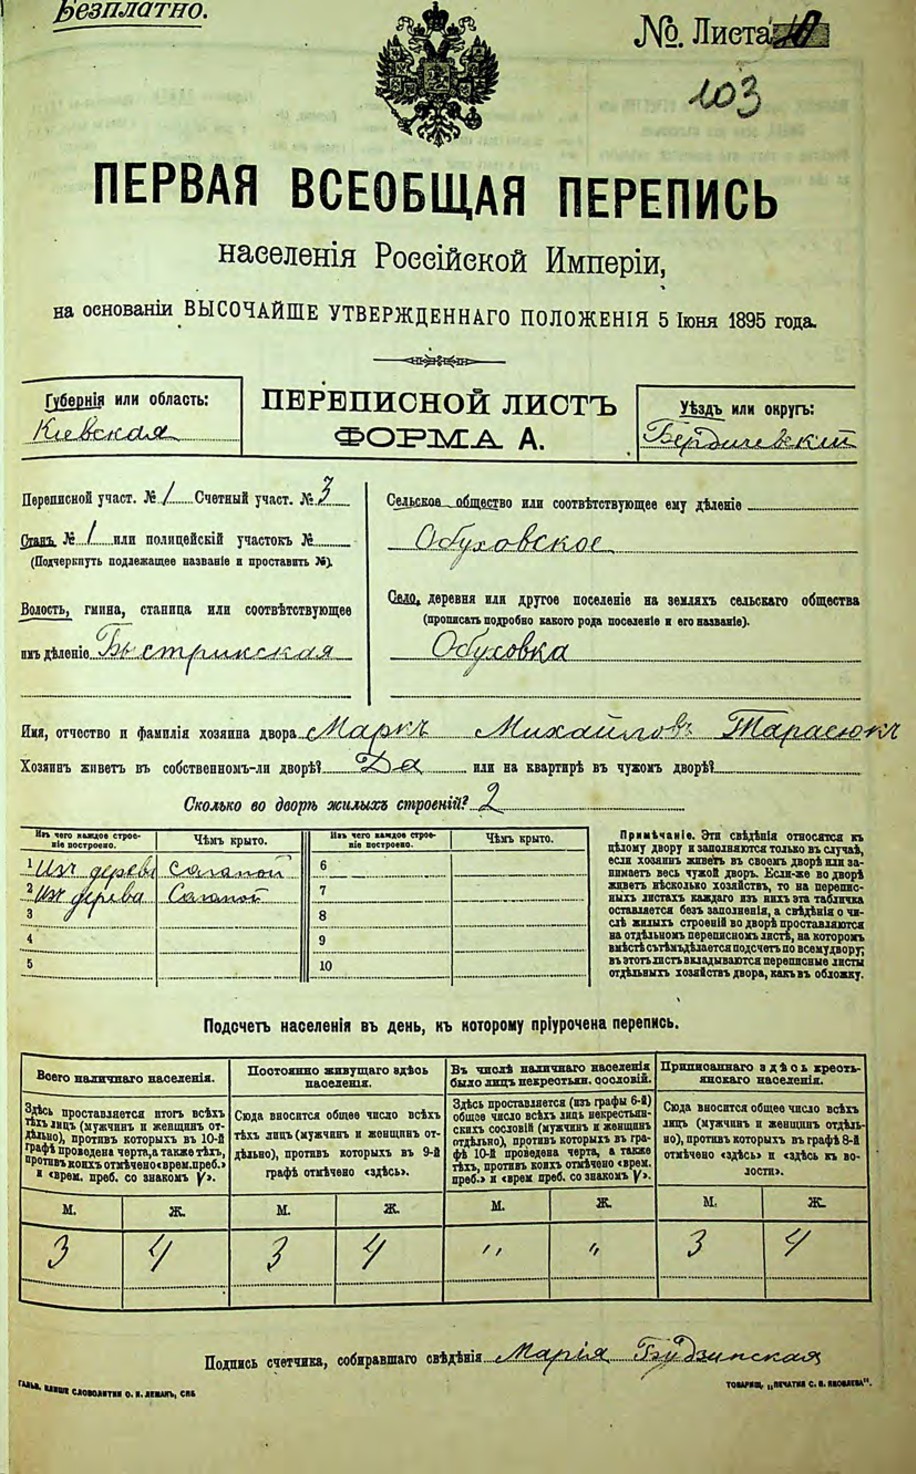 Безплатно.
№. Листа
103
ПЕРВАЯ ВСЕОБЩАЯ ПЕРЕПИСЬ
населенія Россійской Имперіи,
на основаніи ВЫСОЧАЙШЕ УТВЕРЖДЕННАГО ПОЛОЖЕНІЯ 5 Іюня 1895 года.
Губернія или область:
Кіевская
ПЕРЕПИСНОЙ ЛИСТЪ
ФОРМА А.
Уѣздъ или округъ:
Бердичевскій
Переписной участ. № 1 Счетный участ. № 3
Станъ № 1 или полицейскій участокъ №
(Подчеркнуть подлежащее названіе и проставить №).
Волость, гмина, станица или соотвѣтствующее
имъ дѣленіе Быстрикская
Сельское общество или соотвѣтствующее ему дѣленіе
Обуховское
Село, деревня или другое поселеніе на земляхъ сельскаго общества
(прописать подробно какого рода поселеніе и его названіе).
Обуховка
Имя, отчество и фамилія хозяина двора Маркъ Михайловъ Тарасюкъ
Хозяинъ живетъ въ собственномъ-ли дворѣ? Да или на квартирѣ въ чужомъ дворѣ?
Сколько во дворѣ жилыхъ строеній? 2
Изъ чего каждое строеніе построено.
Чѣмъ крыто.
Изъ чего каждое строеніе построено.
Чѣмъ крыто.
1 Изъ дерева
6
2 Изъ дерева
7
3
8
4
9
5
10
Примѣчаніе. Эти свѣдѣнія относятся къ
цѣлому двору и заполняются только въ случаѣ,
если хозяинъ живетъ въ своемъ дворѣ или за-
нимаетъ весь чужой дворъ. Если-же во дворѣ
живетъ нѣсколько хозяйствъ, то на перепис-
ныхъ листахъ каждаго изъ нихъ эта табличка
оставляется безъ заполненія, а свѣдѣнія о чи-
слѣ жилыхъ строеній во дворѣ проставляются
на отдѣльномъ переписномъ листѣ, на которомъ
вмѣстѣ съ тѣмъ дѣлается подсчетъ по всему двору;
въ этотъ листъ вкладываются переписные листы
отдѣльныхъ хозяйствъ двора, какъ въ обложку.
Подсчетъ населенія въ день, къ которому пріурочена перепись.
Всего наличнаго населенія.
Здѣсь проставляется итогъ всѣхъ
тѣхъ лицъ (мужчинъ и женщинъ от-
дѣльно), противъ которыхъ въ 10-й
графѣ проведена черта, а также тѣхъ,
противъ коихъ отмѣчено «врем. преб.»
и «врем. преб. со знакомъ V».
Постоянно живущаго здѣсь
населенія.
Сюда вносится общее число всѣхъ
тѣхъ лицъ (мужчинъ и женщинъ от-
дѣльно), противъ которыхъ въ 9-й
графѣ отмѣчено «здѣсь».
Въ числѣ наличнаго населенія
было лицъ некрестьян. сословій.
Здѣсь проставляется (изъ графы 6-й)
общее число всѣхъ лицъ некрестьян-
скихъ сословій (мужчинъ и женщинъ
отдѣльно), противъ которыхъ въ гра-
фѣ 10-й проведена черта, а также
тѣхъ, противъ коихъ отмѣчено «врем.
преб.» и «врем. преб. со знакомъ V».
Приписаннаго здѣсь кресть-
янскаго населенія.
Сюда вносится общее число всѣхъ
лицъ (мужчинъ и женщинъ отдѣль-
но), противъ которыхъ въ графѣ 8-й
отмѣчено «здѣсь» и «здѣсь въ во-
лости».
М. Ж. М. Ж. М. Ж. М. Ж.
3 4 3 4 " " 3 4
Подпись счетчика, собиравшаго свѣдѣнія Марія Будзинская
ГАЛЬВ. КЛИШЕ СЛОВОЛИТНИ О. И. ЛЕМАНЪ, СПБ
ТОВАРИЩ. „ПЕЧАТНЯ С. П. ЯКОВЛЕВА".